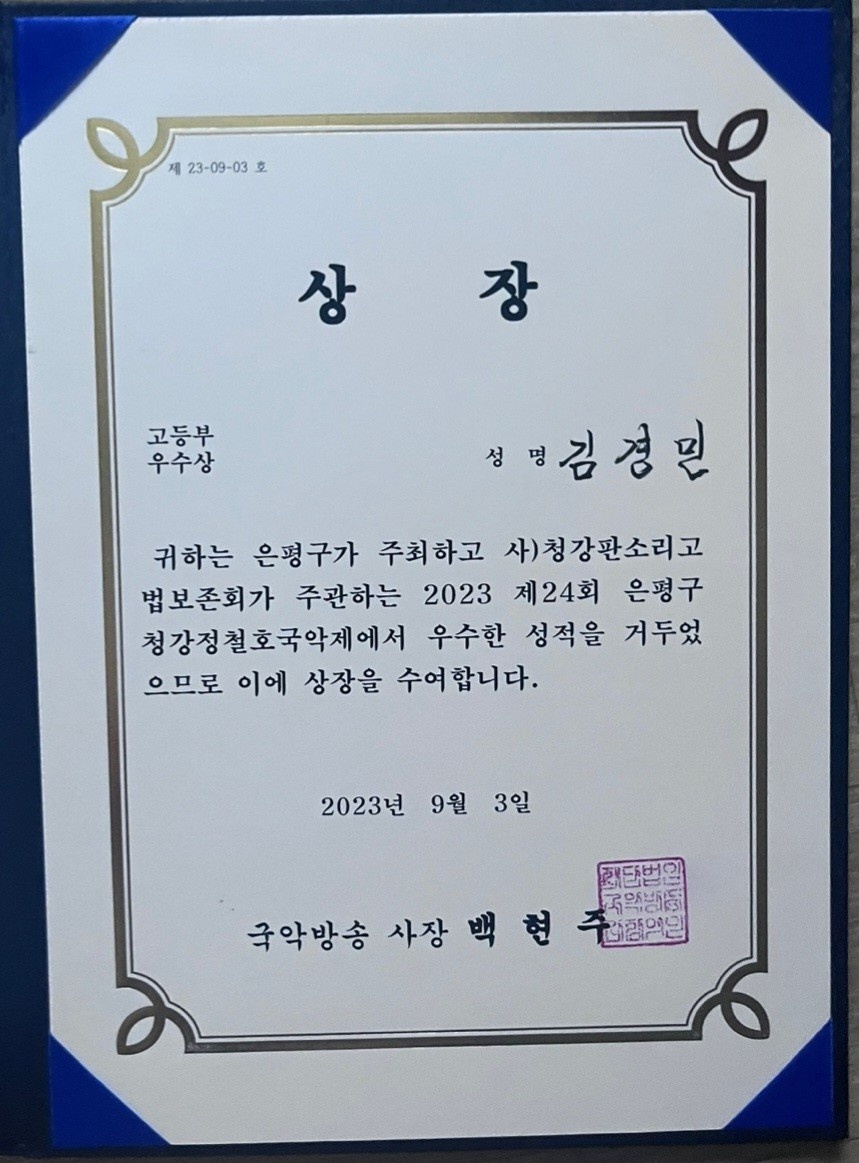 제 23-09-03 호
상 장
고등부
우수상
성 명 김경민
귀하는 은평구가 주최하고 사)청강판소리고
법보존회가 주관하는 2023 제24회 은평구
청강정철호국악제에서 우수한 성적을 거두었
으므로 이에 상장을 수여합니다.
2023년 9월 3일
국악방송 사장 백 현 주